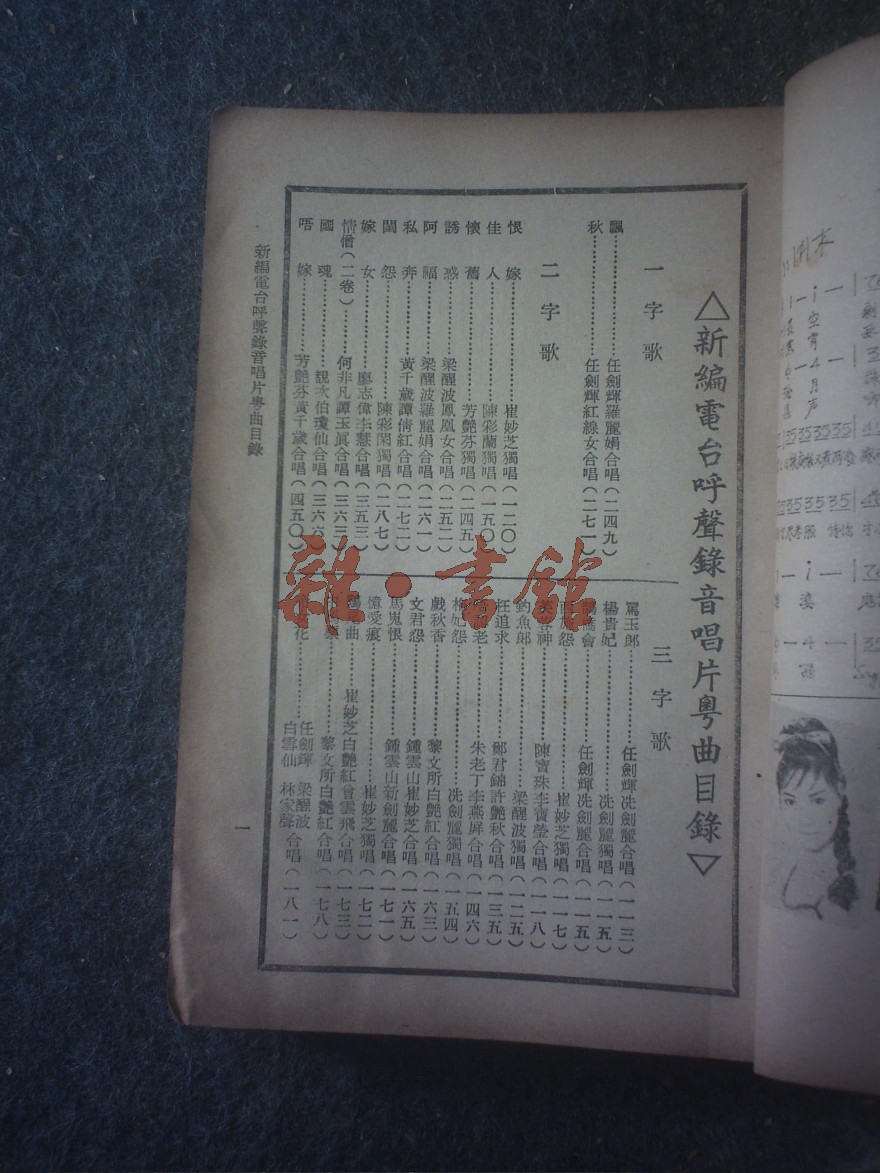 △新編電台呼聲錄音唱片粵曲目錄▽
一字歌
飄⋯⋯任劍輝羅麗娟合唱(二四九)
秋⋯⋯任劍輝紅線女合唱(二七一)
二字歌
恨嫁⋯⋯崔妙芝獨唱(一二〇)
佳人⋯⋯陳彩蘭獨唱(一五〇)
懷舊⋯⋯芳艷芬獨唱(二四五)
誘惑⋯⋯梁醒波鳳凰女合唱(二五二)
阿福⋯⋯梁醒波羅麗娟合唱(二六一)
私奔⋯⋯黃千歲譚倩紅合唱(二七二)
閨怨⋯⋯陳彩閑獨唱(二八七)
嫁女⋯⋯廖志偉李慧合唱(三五三)
情僧(二卷)⋯⋯何非凡譚玉眞合唱(三六三)
國魂⋯⋯靚次伯瓊仙合唱(三六六)
唔嫁⋯⋯芳艷芬黃千歲合唱(四五〇)
三字歌
罵玉郎⋯⋯任劍輝冼劍麗合唱(一一三)
楊貴妃⋯⋯冼劍麗獨唱(一一五)
會⋯⋯任劍輝冼劍麗合唱(一一五)
怨⋯⋯崔妙芝獨唱(一一七)
神⋯⋯陳寶珠李寶瑩合唱(一一八)
釣魚郎⋯⋯梁醒波獨唱(一二五)
枉追求⋯⋯鄭君錦許艷秋合唱(一三五)
老⋯⋯朱老丁李燕屏合唱(一四六)
梅妃怨⋯⋯冼劍麗獨唱(一五四)
戲秋香⋯⋯黎文所白艷紅合唱(一六三)
文君怨⋯⋯鍾雲山崔妙芝合唱(一六五)
馬嵬恨⋯⋯鍾雲山新劍麗合唱(一七一)
憶愛痕⋯⋯崔妙芝獨唱(一七二)
曲⋯⋯崔妙芝白艷紅曾雲飛合唱(一七三)
⋯⋯黎文所白艷紅合唱(一七八)
花⋯⋯任劍輝 梁醒波 白雪仙 林家聲 合唱(一八一)
新編電台呼聲錄音唱片粵曲目錄
一
雜·書館